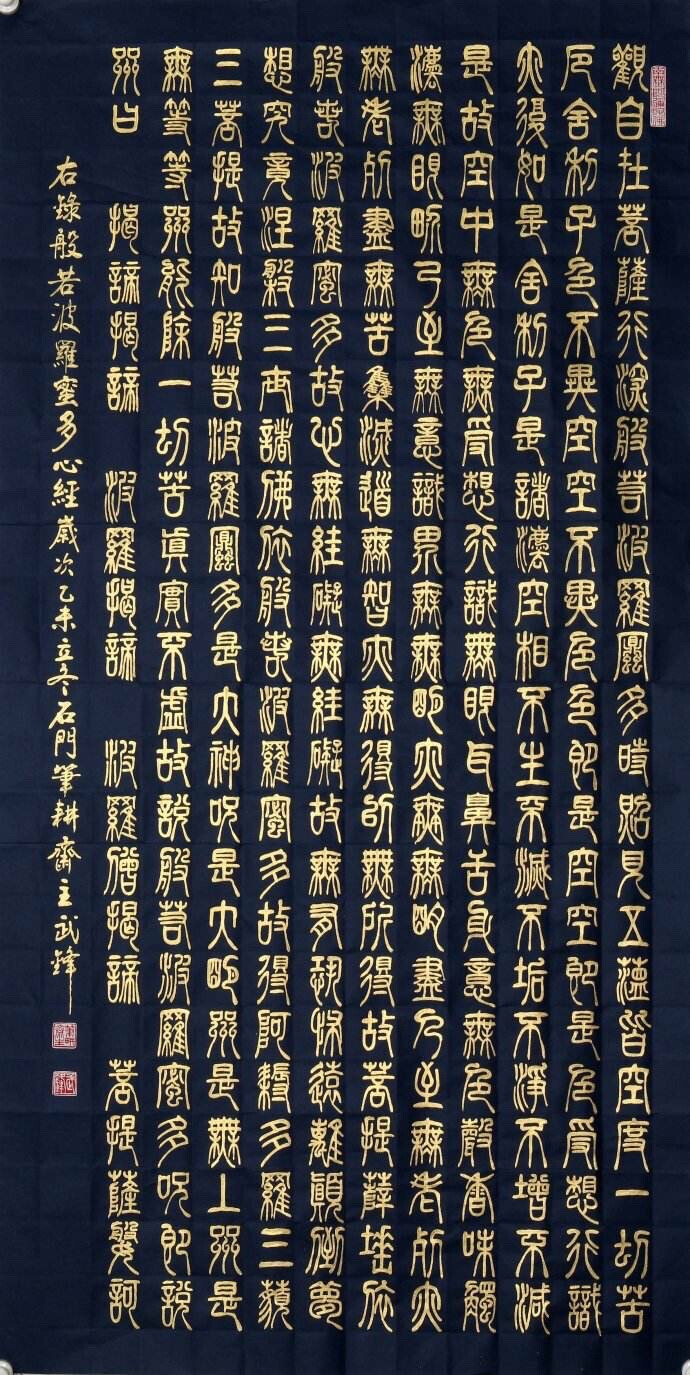 觀自在菩薩行深般若波羅蜜多時照見五蘊皆空度一切苦
厄舍利子色不異空空不異色色即是空空即是色受想行識
亦復如是舍利子是諸法空相不生不滅不垢不淨不增不減
是故空中無色無受想行識無眼耳鼻舌身意無色聲香味觸
法無眼界乃至無意識界無無明亦無無明盡乃至無老死亦
無老死盡無苦集滅道無智亦無得以無所得故菩提薩埵依
般若波羅蜜多故心無罣礙無罣礙故無有恐怖遠離顛倒夢
想究竟涅槃三世諸佛依般若波羅蜜多故得阿耨多羅三藐
三菩提故知般若波羅蜜多是大神咒是大明咒是無上咒是
無等等咒能除一切苦真實不虛故說般若波羅蜜多咒即說
咒曰 揭諦揭諦 波羅揭諦 波羅僧揭諦 菩提薩婆訶
右錄般若波羅蜜多心經歲次乙未立冬石門筆耕齋主武鋒